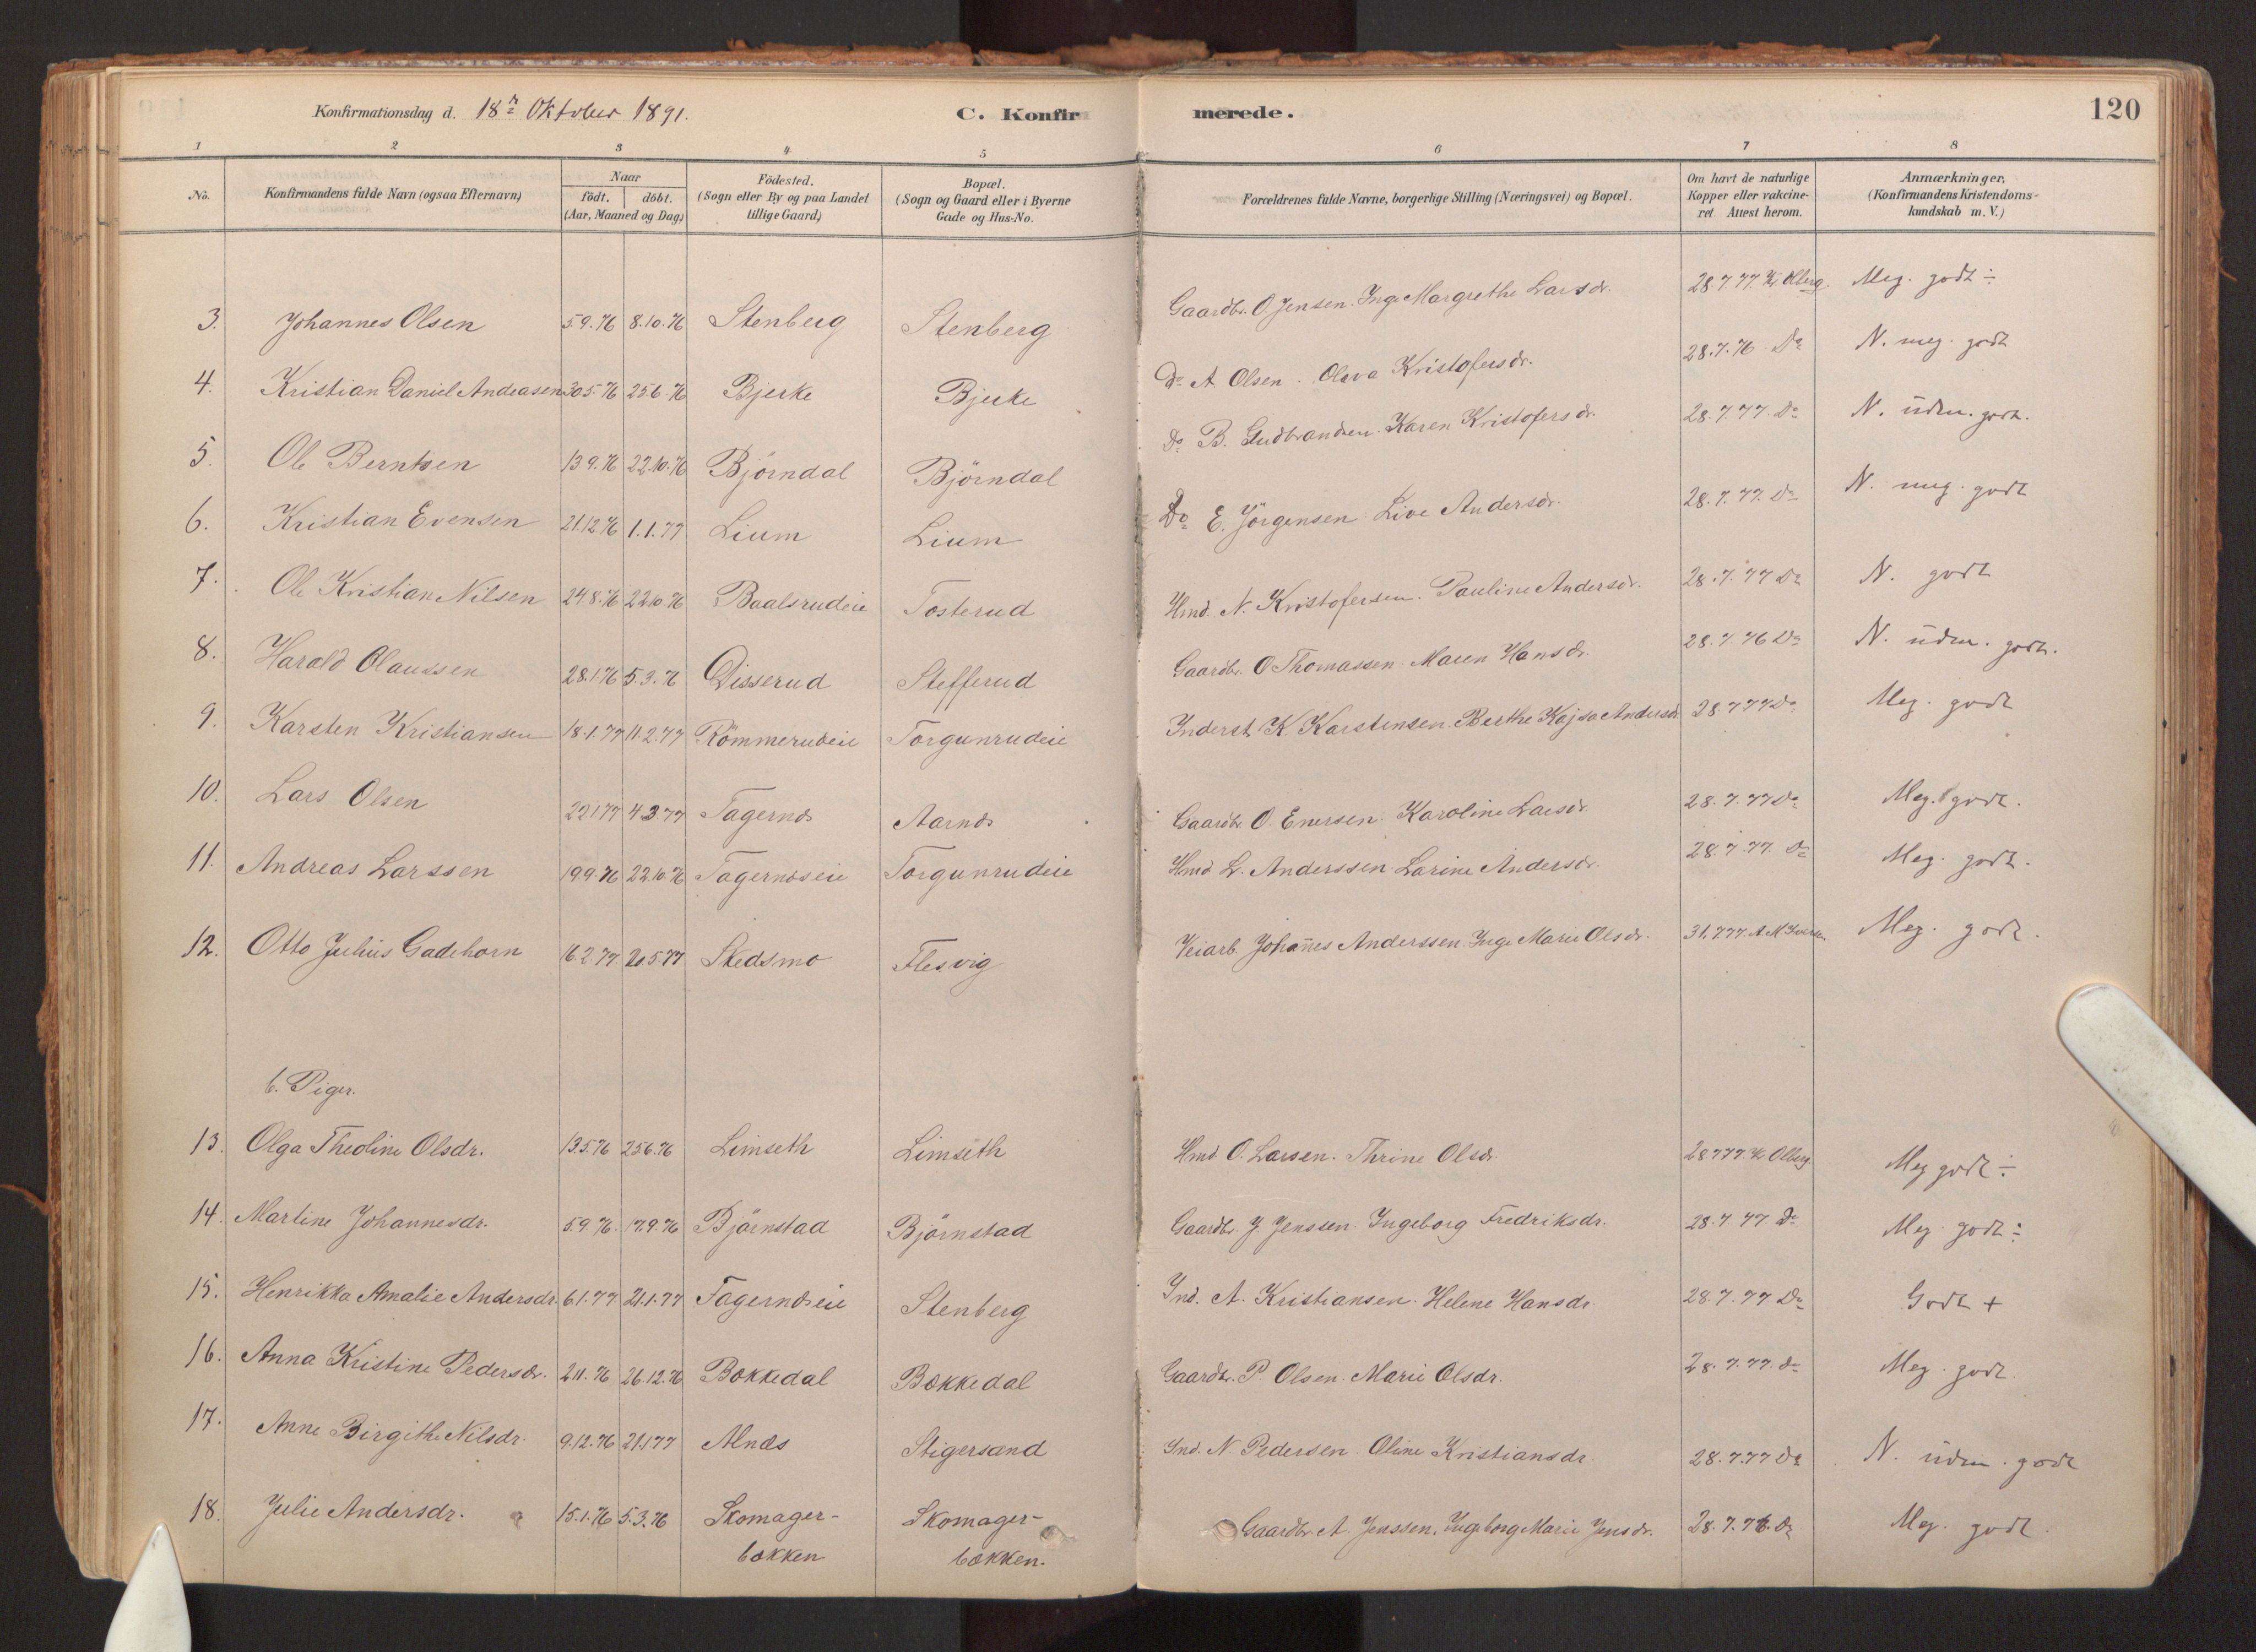 Konfirmationsdag d. 18de Oktober 1891. C. Konfirmerede. 120
1 2 3 4 5 6 7 8
No. Konfirmandens fulde Navn (ogsaa Efternavn) Naar födt. döbt. (Aar, Maaned og Dag) Födested. (Sogn eller By og paa Landet tillige Gaard) Bopæl. (Sogn og Gaard eller i Byerne Gade og Hus-No. Forældrenes fulde Navne, borgerlige Stilling (Næringsvei) og Bopæl. Om havt de naturlige Kopper eller vakcineret Attest herom. Anmærkninger, (Konfirmandens Kristendomskundskab m. V.)
3. Johannes Olsen 5.9.76 8.10.76 Stenberg Stenberg Gaardbr. O. Jensen. Inge Margrethe Larsdr. 28.7.77 Olberg. Meg. godt ÷
4. Kristian Daniel Andreasen 30.5.76 25.6.76 Bjerke Bjerke Do A Olsen. Olava Kristofersdr. 28.7.76 Do N. meg. godt
5. Ole Berntsen 13.9.76 22.10.76 Björndal Björndal Do B. Gudbrandsen. Karen Kristofersdr. 28.7.77. Do N. üdm. godt.
6. Kristian Evensen 21.12.76 1.1.77 Lium Lium Do E. Jörgensen Live Andersdr. 28.7.77. Do N. meg. godt
7. Ole Kristian Nilsen 24.8.76 22.10.76 Baalsrudeie Tosterud Hmd. N. Kristofersen. Pauline Andersdr. 28.7.77 Do N. godt
8. Harald Olaussen 28.1.76 5.3.76 Disserud Stefferud Gaardbr. O Thomassen. Maren Hansdr. 28.7.76 Do N. üdm. godt.
9. Karsten Kristiansen 18.1.77 11.2.77 Römmerudeie Torgunrudeie Inderst K Karstensen. Berthe Kajsa Andersdr. 28.7.77 Do Meg. godt
10. Lars Olsen 22.1.77 4.3.77 Tagernæs Aarnæs Gaardbr. O. Enersen. Karoline Larsdr. 28.7.77 Do Meg. godt.
11. Andreas Larssen 19.9.76 22.10.76 Tagernæseie Torgunrudeie Hmd L. Anderssen. Larine Andersdr. 28.7.77. Do Meg. godt.
12. Otto Julius Gadehorn 16.2.77 20.5.77 Skedsmo Flesvig Veiarb. Johannes Anderssen. Inge Marie Olsdr. 31.7.77. A M Meg. godt.
b. Piger.
13. Olga Theoline Olsdr. 13.5.76 25.6.76 Limseth Limseth Hmd. O. Larsen. Thrine Olsdr. 28.7.77. Olberg. Meg godt ÷
14. Martine Johannesdr. 5.9.76. 17.9.76 Björnstad Björnstad Gaardbr. J Jenssen. Ingeborg Fredriksdr. 28.7.77 Do Meg. godt ÷
15. Henrikka Amalie Andersdr. 6.1.77 21.1.77 Fagernæseie Stenberg Ind. A. Kristiansen. Helene Hansdr. 28.7.77 Do Godt +
16. Anna Kristine Pedersdr. 2.11.76 26.12.76 Bækkedal Bækkedal Gaardbr. P. Olsen. Marie Olsdr. 28.7.77. Do Meg. godt
17. Anne Birgithe Nilsdr. 9.12.76 21.1.77 Alnæs Stigersand Ind. N. Pedersen. Oline Kristiansdr. 28.7.77 Do N. üdm. godt
18. Julie Andersdr. 15.1.76 5.3.76 Skomager- Skomager- Gaardbr. A. Jenssen. Ingeborg Marie Jensdr. 28.7.76. Do Meg. godt.
bækken bækken.